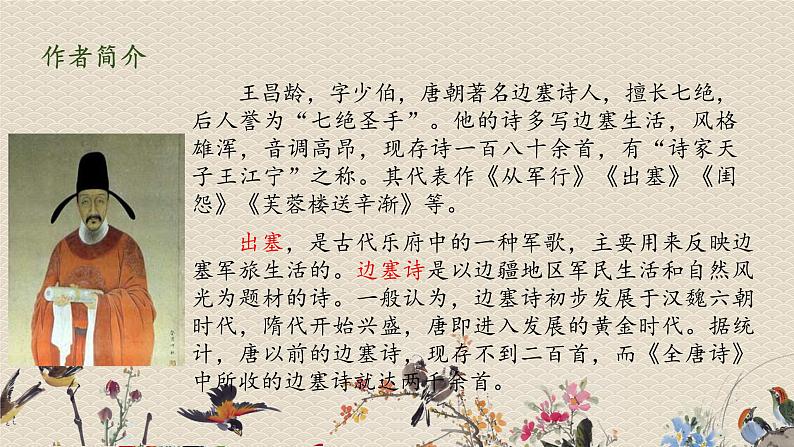 作者简介
王昌龄，字少伯，唐朝著名边塞诗人，擅长七绝，
后人誉为“七绝圣手”。他的诗多写边塞生活，风格
雄浑，音调高昂，现存诗一百八十余首，有“诗家天
子王江宁”之称。其代表作《从军行》《出塞》《闺
怨》《芙蓉楼送辛渐》等。
出塞，是古代乐府中的一种军歌，主要用来反映边
塞军旅生活的。边塞诗是以边疆地区军民生活和自然风
光为题材的诗。一般认为，边塞诗初步发展于汉魏六朝
时代，隋代开始兴盛，唐即进入发展的黄金时代。据统
计，唐以前的边塞诗，现存不到二百首，而《全唐诗》
中所收的边塞诗就达两千余首。